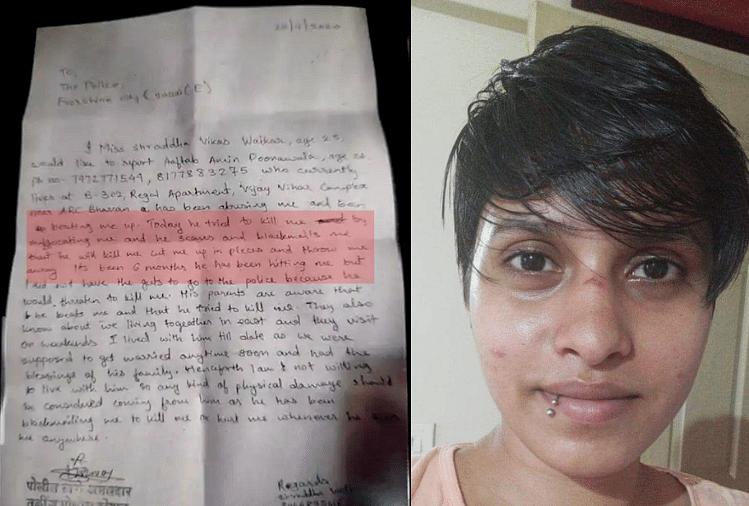 To,
The Police,
I Miss Shraddha Vikas Walkar, age 25,
would like to report Aaftab Amin Poonawala, age 26
ph no- 7972771549, 8177883275 who currently
lives at B-302, Regal Apartment, Vijay Vihar Complex
near ARC Bhavan has been abusing me and been
beating me up. Today he tried to kill me by
suffocating me and he scares and blackmails me
that he will kill me, cut me up in pieces and throw me
away. Its been 6 months he has been hitting me but
I did not have the guts to go to the police because he
would threaten to kill me. His parents are aware that
he beats me and that he tried to kill me. They also
know about we living together in and they visit
on weekends. I lived with him till date as we were
supposed to get married anytime soon and had the
blessings of his family. Henceforth I am not willing
to live with him so any kind of physical damage should
be considered coming from him as he has been
blackmailing me to kill me or hurt me whenever he
me anywhere.
Regards